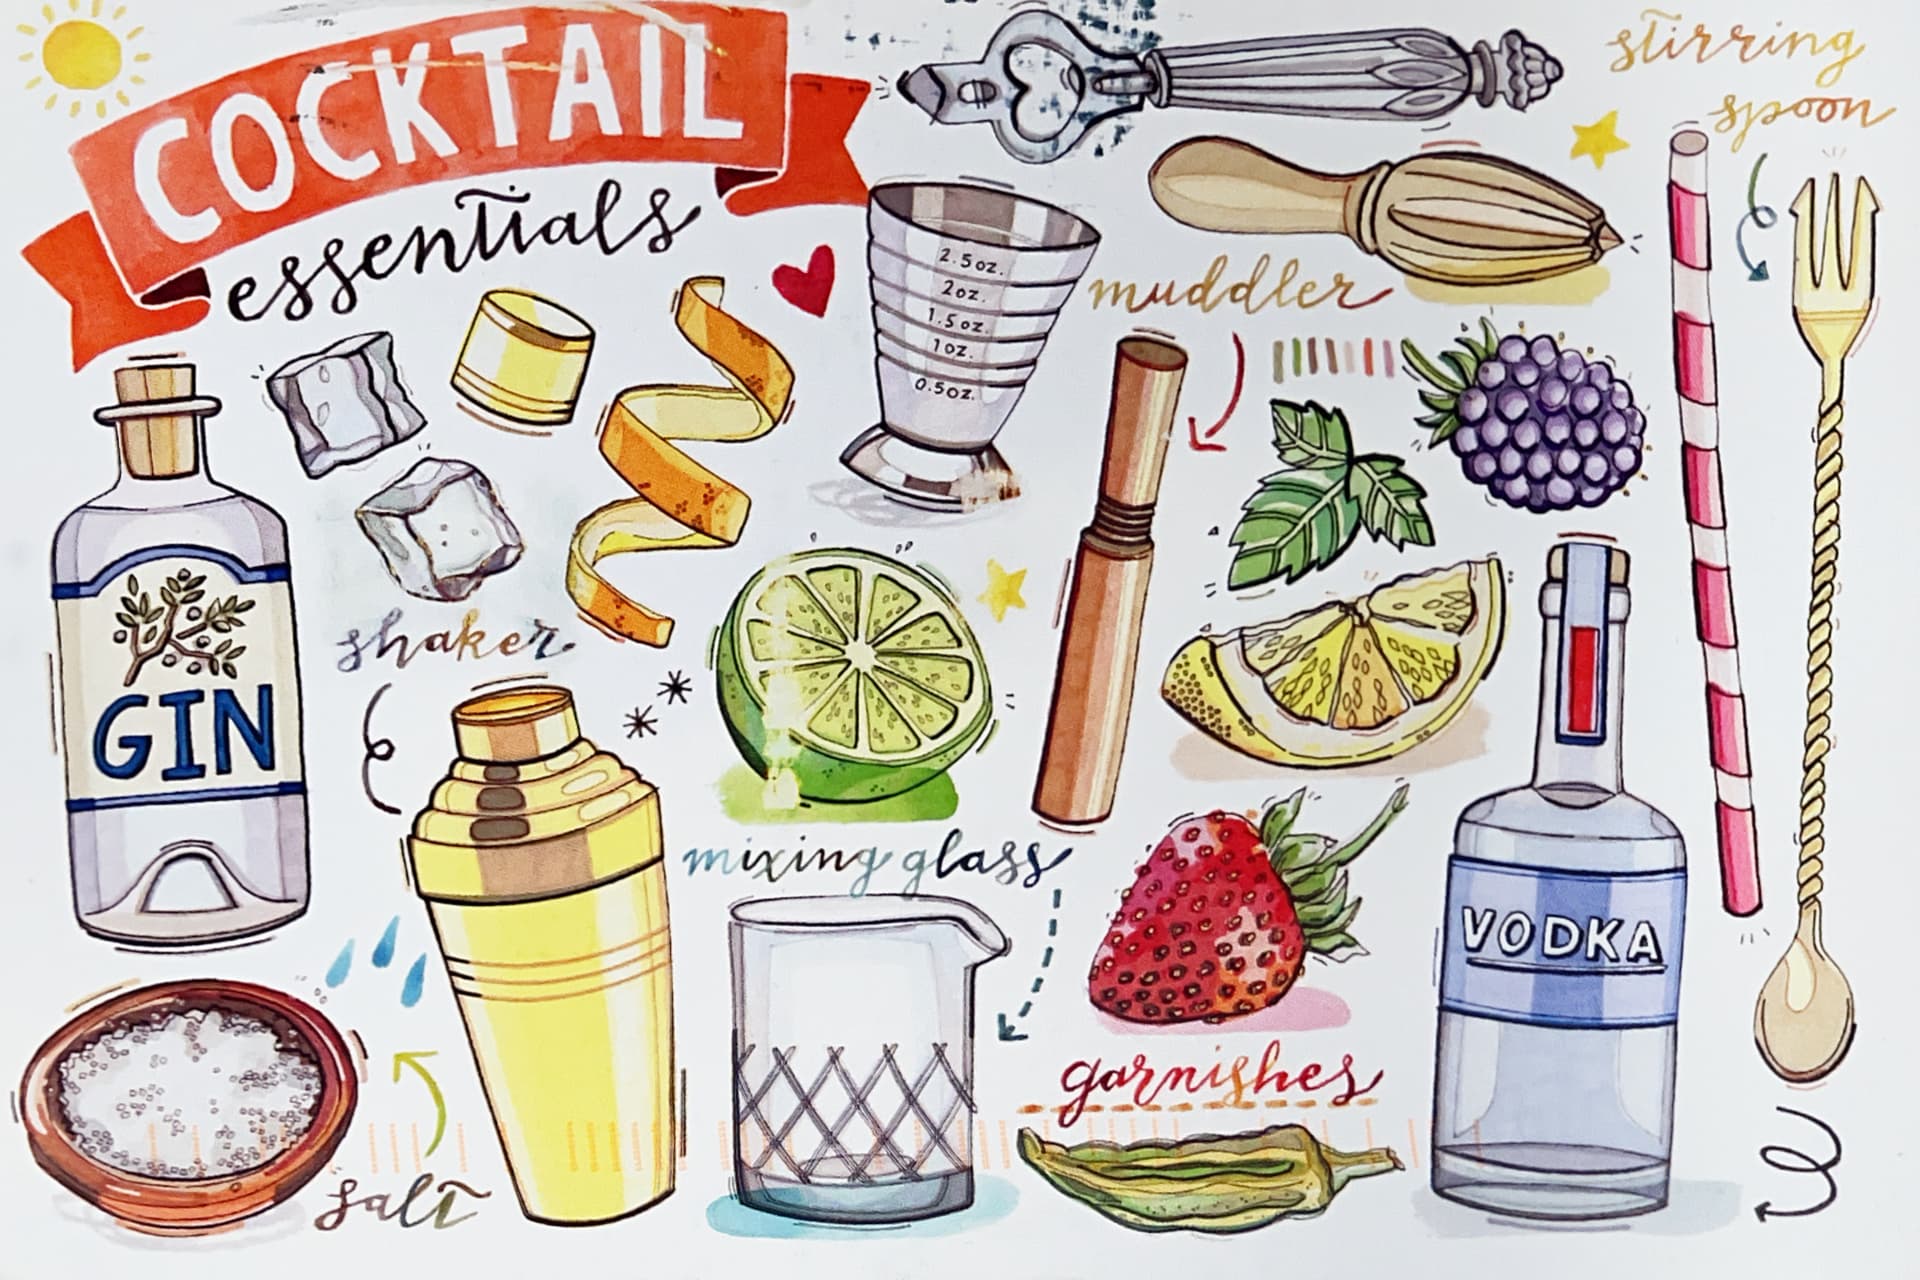 COCKTAIL
essentials
stirring
spoon
2.5 oz.
2 oz.
1.5 oz.
1 oz.
0.5 oz.
muddler
shaker
GIN
mixing glass
VODKA
garnishes
salt